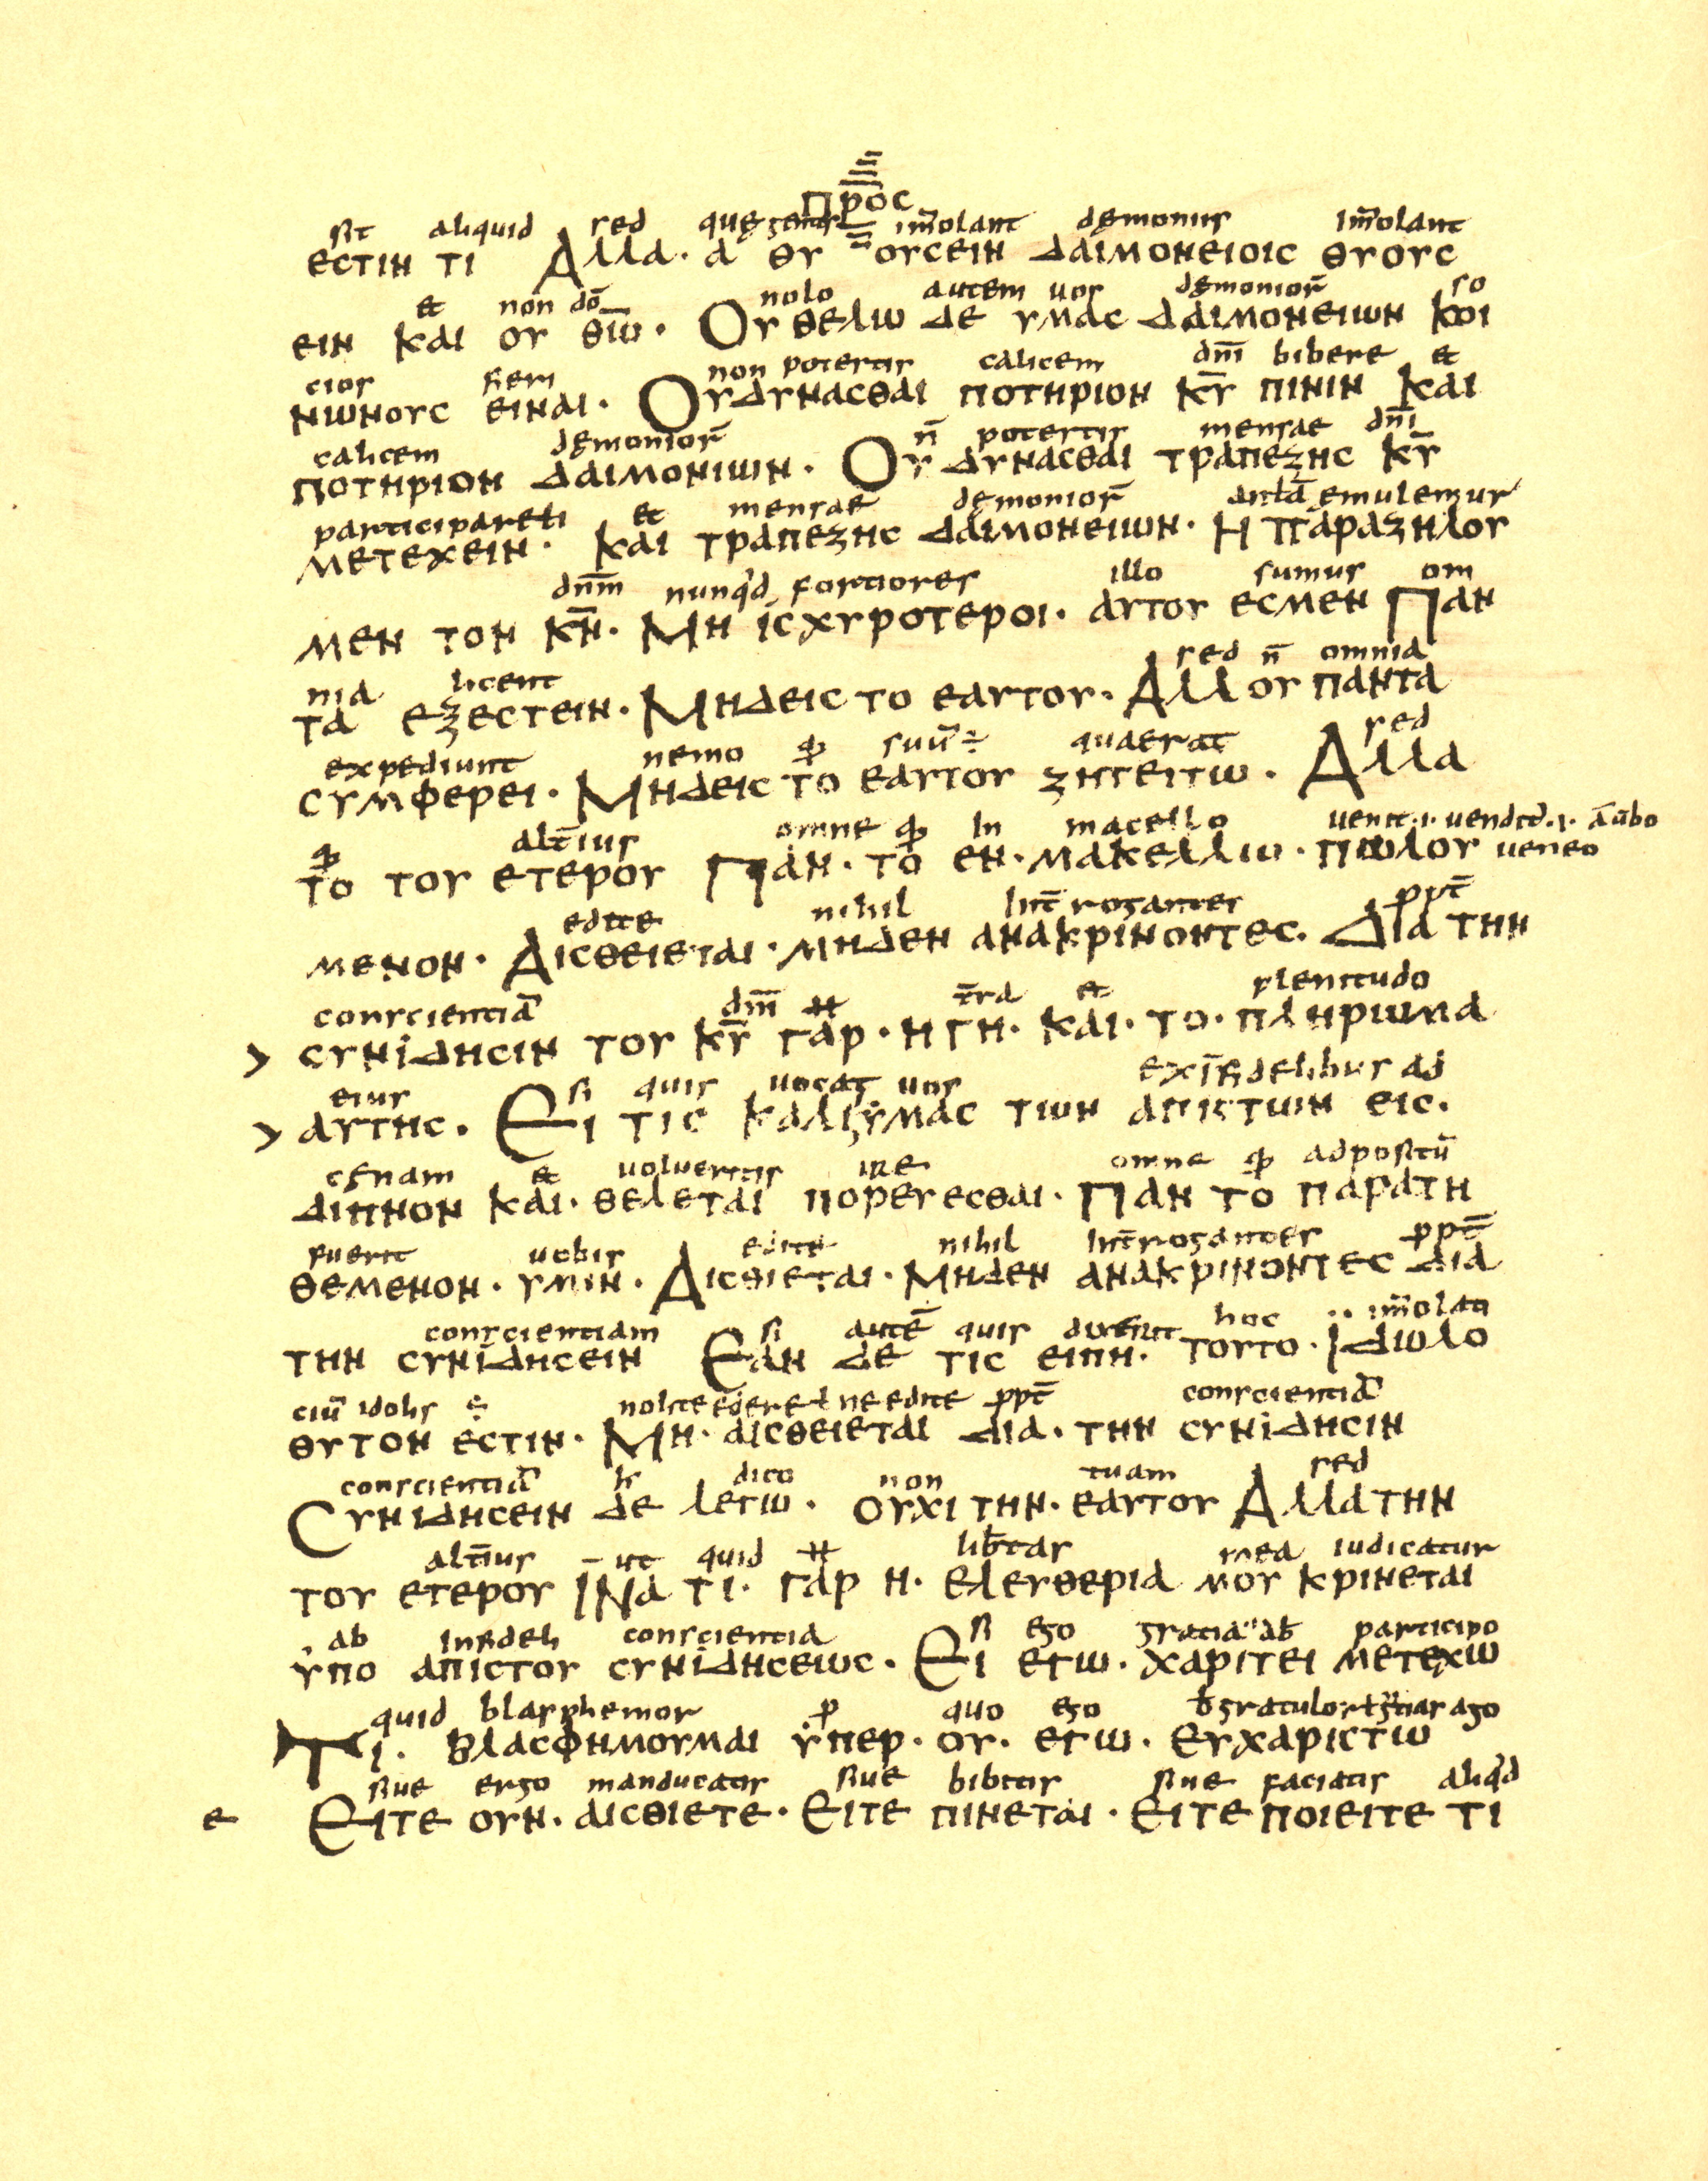 ΠΡΟC
sit aliquid sed quę gentes im̄olant dęmoniis im̄olant
ЄCΤΙΝ ΤΙ ΑΛΛΑ· Α ΘΥ ΟΥCЄΙΝ ΔΑΙΜΟΝЄΙΟΙC ΘΥΟΥC
et non dō nolo autem uos dęmonior̄ so
ЄΙΝ ΚΑΙ ΟΥ Θ̅Ω̅· ΟΥ ΘЄΛΩ ΔЄ ΥΜΑC ΔΑΙΜΟΝЄΙΩΝ ΚΟΙ
cios fieri non potestis calicem dn̄i bibere et
ΝΩΝΟΥC ЄΙΝΑΙ· ΟΥΔΥΝΑCΘΑΙ ΠΟΤΗΡΙΟΝ Κ̅Υ̅ ΠΙΝΙΝ ΚΑΙ
calicem dęmonior̄ n̄ potestis mensae dn̄i
ΠΟΤΗΡΙΟΝ ΔΑΙΜΟΝΙΩΝ· ΟΥ ΔΥΝΑCΘΑΙ ΤΡΑΠЄΖΗC Κ̅Υ̅
participare et mensae dęmonior̄ emulemur
ΜЄΤЄΧЄΙΝ· ΚΑΙ ΤΡΑΠЄΖΗC ΔΑΙΜΟΝЄΙΩΝ· Η ΠΑΡΑΖΗΛΟΥ
dn̄m nunq'd fortiores illo sumus om
ΜЄΝ ΤΟΝ Κ̅Ν̅· ΜΗ ΙCΧΥΡΟΤЄΡΟΙ· ΑΥΤΟΥ ЄCΜЄΝ ΠΑΝ
nia licent sed n̄ omnia
ΤΑ ЄΞЄCΤЄΙΝ· ΜΗΔЄΙC ΤΟ ЄΑΥΤΟΥ· ΑΛΛ ΟΥ ΠΑΝΤΑ
expediunt nemo qđ suū ÷ quaerat sed
CΥΜΦЄΡЄΙ· ΜΗΔЄΙC ΤΟ ЄΑΥΤΟΥ ΖΗΤЄΙΤΩ· ΑΛΛΑ
qđ alt̄ius omne qđ in macello uenit .i. uendit᷑ .i. āābo
ΤΟ ΤΟΥ ЄΤЄΡΟΥ ΠΑΝ· ΤΟ ЄΝ· ΜΑΚЄΛΛΩ· ΠΩΛΟΥ ueneo
edite nihil int̄rogantes ppt̄
ΜЄΝΟΝ· ΑΙCΘЄΙЄΤΑΙ· ΜΗΔЄΝ ΑΝΑΚΡΙΝΟΝΤЄC· ΔΙΑ ΤΗΝ
conscientiā dn̄i t̄ra et plenitudo
CΥΝΙΔΗCΙΝ ΤΟΥ Κ̅Υ̅ ΓΑΡ· Η ΓΗ· ΚΑΙ· ΤΟ· ΠΛΗΡΩΜΑ
eius si quis uocat uos ex īfidelibus ad
ΑΥΤΗC· ЄΙ ΤΙC ΚΑΛΙ ΥΜΑC ΤΩΝ ΑΠΙCΤΩΝ ЄΙC·
cęnam et uolueritis ire omne qđ adpositū
ΔΙΠΝΟΝ ΚΑΙ· ΘЄΛЄΤΑΙ ΠΟΡЄΥЄCΘΑΙ· ΠΑΝ ΤΟ ΠΑΡΑΤΗ
fuerit uobis edite nihil int̄rogantes ppt̄
ΘЄΜЄΝΟΝ· ΥΜΙΝ· ΑΙCΘΙЄΤΑΙ· ΜΗΔЄΝ ΑΝΑΚΡΙΝΟΝΤЄC ΔΙΑ
conscientiam si autē quis dixerit hoc im̄olati
ΤΗΝ CΥΝΙΔΗCЄΙΝ ЄΑΝ ΔЄ ΤΙC ЄΙΠΗ· ΤΟΥΤΟ· ΙΔΩΛΟ
ciū idolis ÷ nolite edere ł ne edite ppt̄ conscientiā
ΘΥΤΟΝ ЄCΤΙΝ· ΜΗ· ΑΙCΘЄΙЄΤΑΙ ΔΙΑ· ΤΗΝ CΥΝΙΔΗCΙΝ
conscientiā dico non tuam sed
CΥΝΙΔΗCЄΙΝ ΔЄ ΛЄΓΩ· ΟΥΧΙ ΤΗΝ· ЄΑΥΤΟΥ ΑΛΛΑ ΤΗΝ
alt̄ius ut quid lib̄tas mea iudicatur
ΤΟΥ ЄΤЄΡΟΥ ΙΝΑ ΤΙ· ΓΑΡ Η· ЄΛЄΥΘЄΡΙΑ ΜΟΥ ΚΡΙΝЄΤΑΙ
ab infideli conscientia si ego gratia participo
ΥΠΟ ΑΠΙCΤΟΥ CΥΝΙΔΗCЄΩC· ЄΙ ЄΓΩ· ΧΑΡΙΤЄΙ ΜЄΤЄΧΩ
quid blasphemor p quo ego gratulor ł gr̄tias ago
ΤΙ· ΒΛΑCΦΗΜΟΥΜΑΙ ΥΠЄΡ· ΟΥ· ЄΓΩ· ЄΥΧΑΡΙCΤΩ
siue ergo manducatis siue bibitis siue faciatis aliq'd
Є ЄΙΤЄ ΟΥΝ· ΑΙCΘΙЄΤЄ· ЄΙΤЄ ΠΙΝЄΤΑΙ· ЄΙΤЄ ΠΟΙЄΙΤЄ ΤΙ